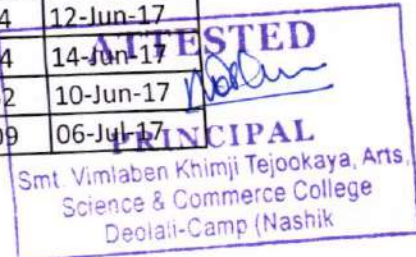 4 12-Jun-17
4 14-Jun-17
2 10-Jun-17
09 06-Jul-17
ATTESTED
PRINCIPAL
Smt. Vimlaben Khimji Tejookaya, Arts,
Science & Commerce College
Deolali-Camp (Nashik